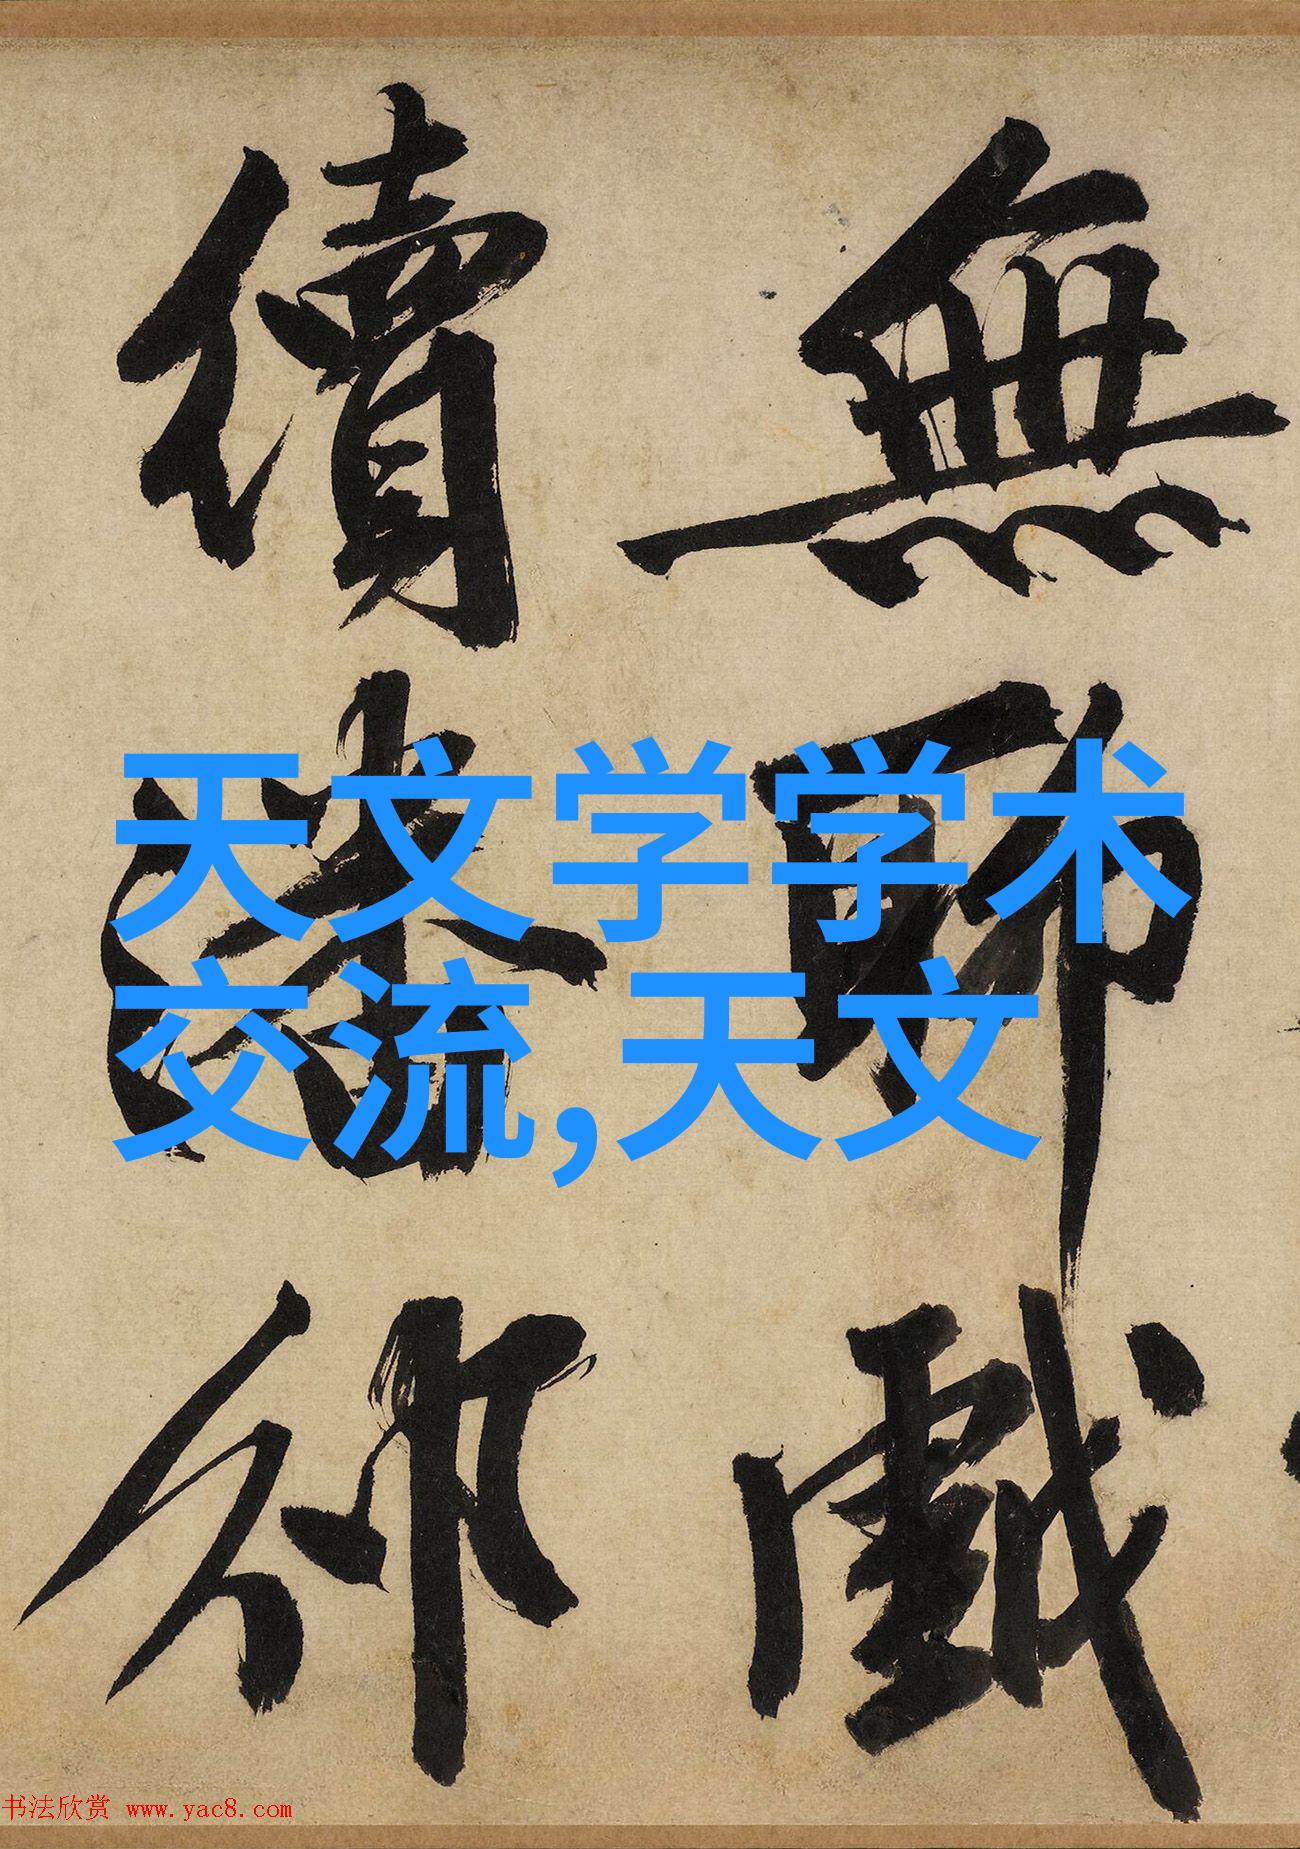 天文学学术
交流,天文
無戲
續
书法欣赏 www.yac8.com